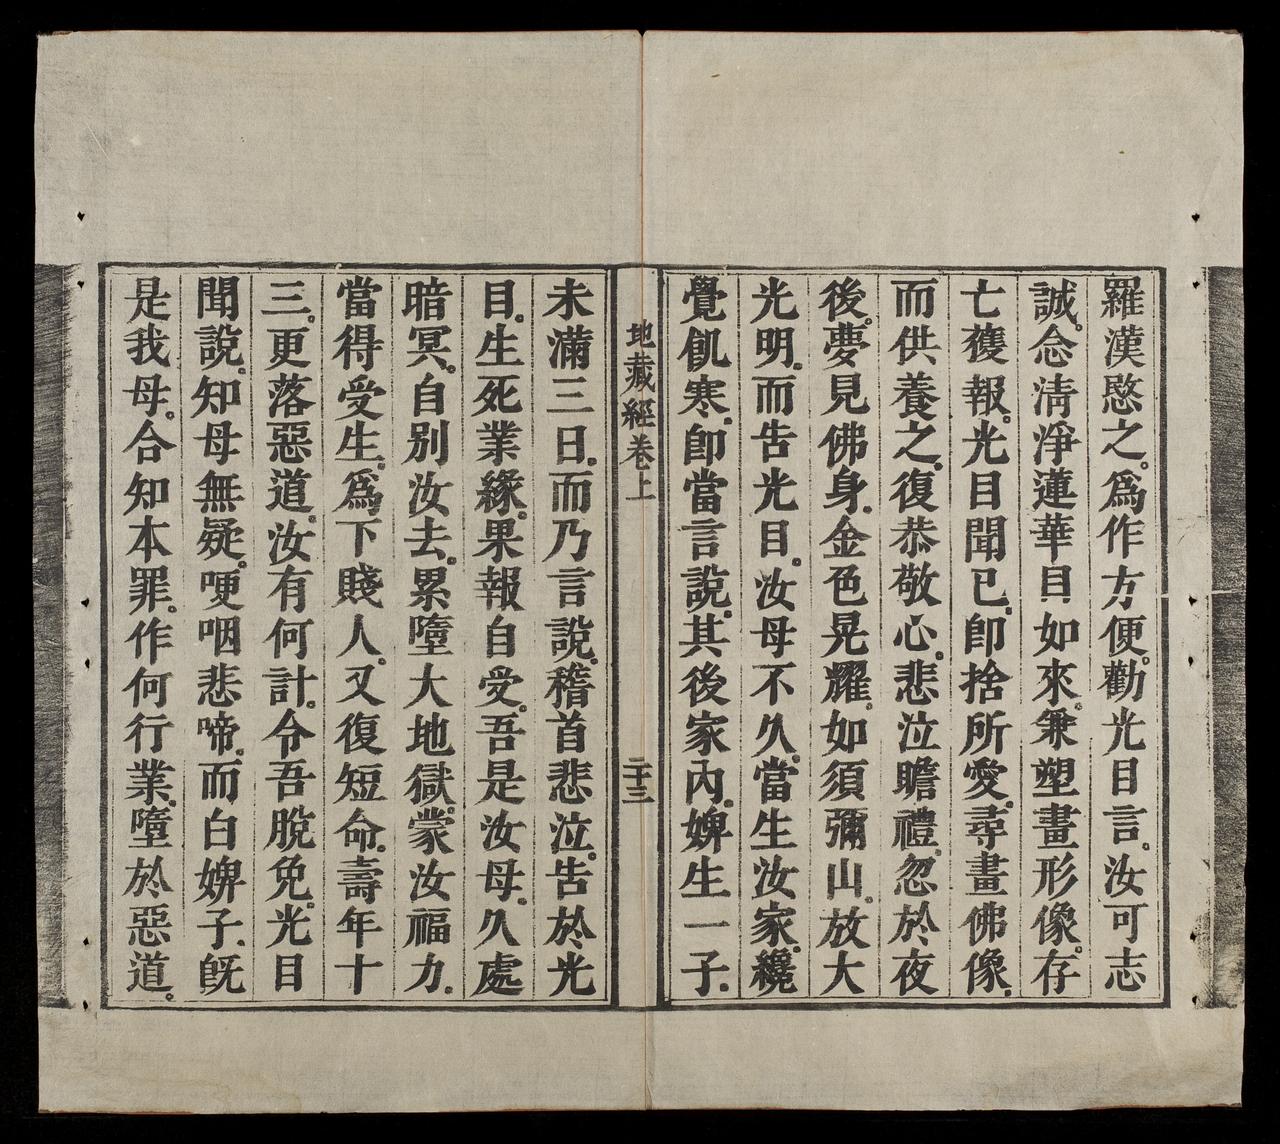 羅漢愍之。爲作方便。勸光目言。汝可志
誠。念淸淨蓮華目如來。兼塑畫形像。存
亡獲報。光目聞已。卽捨所愛。尋畫佛像。
而供養之。復恭敬心。悲泣瞻禮。忽於夜
後。夢見佛身。金色晃耀。如須彌山。放大
光明。而告光目。汝母不久。當生汝家。纔
覺飢寒。卽當言說。其後家內。婢生一子。
地藏經卷上 二十三
未滿三日。而乃言說。稽首悲泣。告於光
目。生死業緣。果報自受。吾是汝母。久處
暗冥。自別汝去。累墮大地獄。蒙汝福力。
當得受生。爲下賤人。又復短命。壽年十
三。更落惡道。汝有何計。令吾脫免。光目
聞說。知母無疑。哽咽悲啼。而白婢子。旣
是我母。合知本罪。作何行業。墮於惡道。